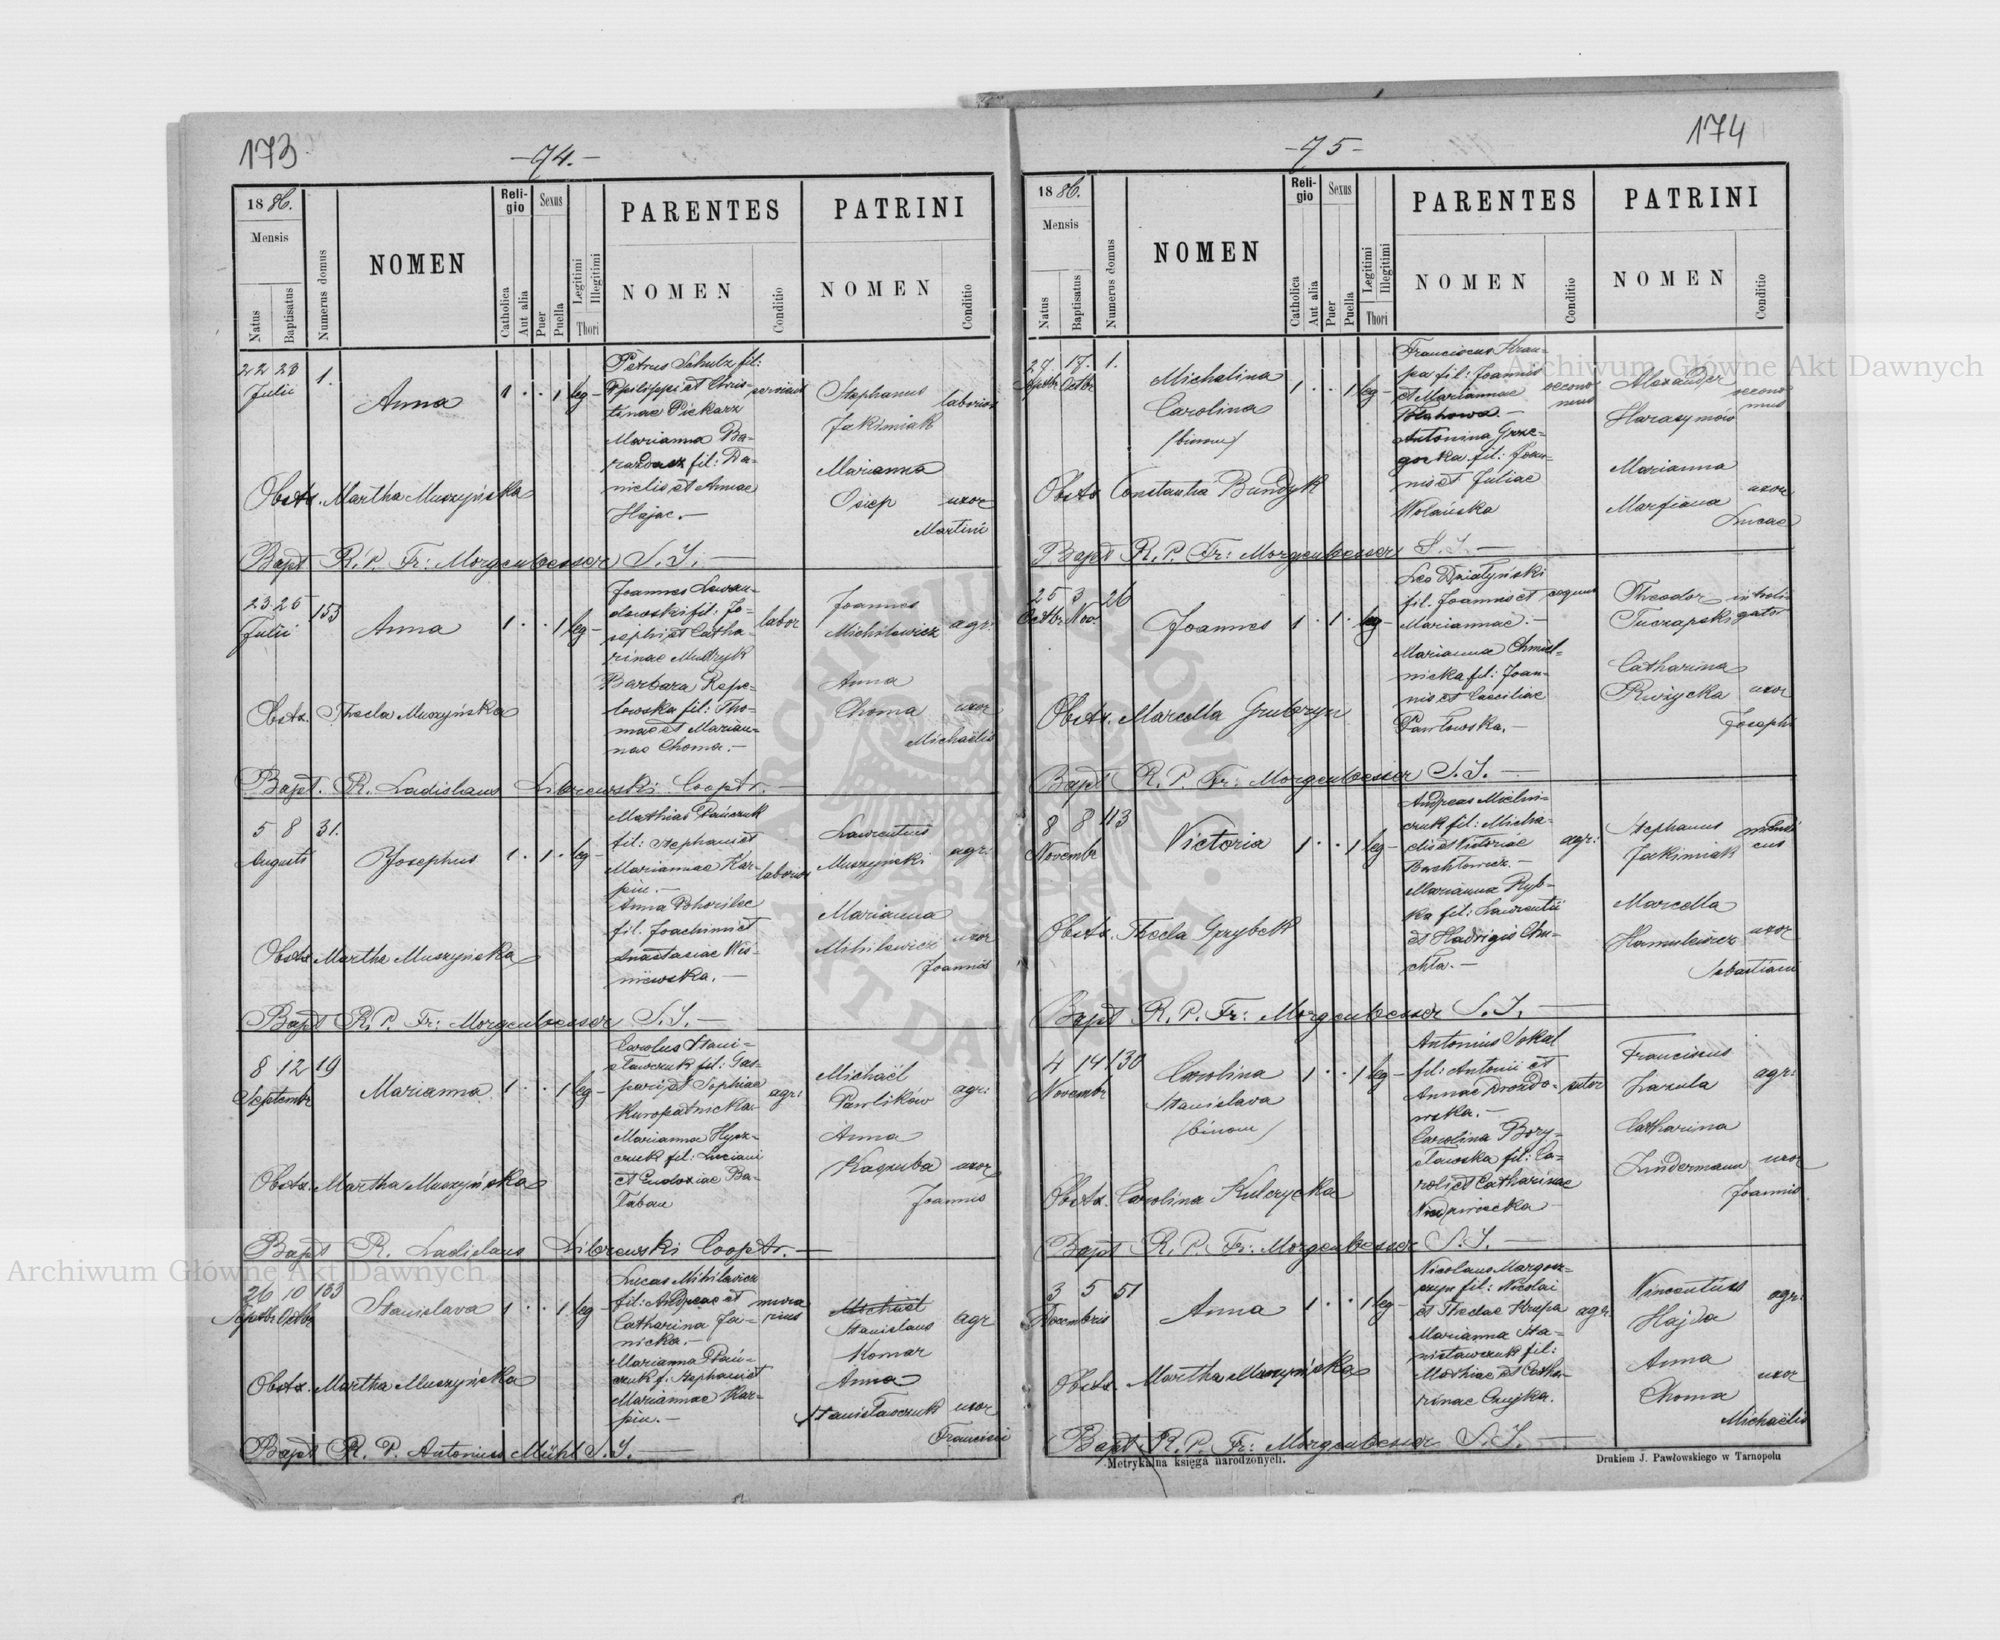 173
-74.-
1886.
Mensis
Natus
Baptisatus
Numerus domus
NOMEN
Religio
Catholica
Aut alia
Sexus
Puer
Puella
Legitimi
Illegitimi
Thori
PARENTES
NOMEN
Conditio
PATRINI
NOMEN
Conditio
22 23 1.
Julii
Anna
1 . . 1 leg-
Petrus Schulz fil:
Philippi et Chris-
tinae Piekarz
Marianna Ba-
fil: Da-
nielis et Annae
Hajac.-
Stephanus
Jakimiak
Marianna
Osiep uxor
Martini
Obstx. Martha Muszyńska
Bapt R. P. Fr: Morgenbesser S. J. —
23 26 153
Julii
Anna
1 . . 1 leg-
Joannes Lewan-
dowski fil: Jo-
sephi et Catha-
rinae Mudryk
Barbara Repe-
towska fil: Tho-
mae et Marian-
nae Choma.-
labor
Joannes
Michilewicz agr:
Anna
Choma uxor
Michaëlis
Obstx. Thecla Muszyńska
Bapt. R. Ladislaus Librewski Cooptr. —
5 8 31.
Augusti
Josephus
1 . 1 . leg-
Mathias Stańczuk
fil: Stephani et
Mariannae Kar-
piu.-
Anna Pohorilec
fil. Joachimi et
Anastasiae Wiś-
niewska.-
Laurentius
Muszynski agr:
Marianna
Mihilewicz uxor
Joannis
Obstx Martha Muszyńska
Bapt R. P. Fr: Morgenbesser S. J. —
8 12 19
Septembr
Marianna
1 . . 1 leg-
Carolus Stani-
sławczuk fil: Gas-
pari et Sophiae
Kuropatnicka.
Marianna Hysz-
czuk fil: Luciani
et Eudoxiae Ba-
łaban
agr:
Michaël
Pawlików agr:
Anna
Kagzuba uxor
Joannis
Obstx. Martha Muszyńska
Bapt R. Ladislaus Librewski Cooptr. —
26 10 133
Septbr Octbr
Stanislava
1 . . 1 leg-
Lucas Mihilewicz
fil: Andreae et
Catharina Ja-
nicka.-
Marianna Stań-
czuk f. Stephani et
Mariannae Kar-
piu.-
mura
rius
Michaël
Stanislaus
Komar
agr
Anna
Stanisławczuk uxor
Francisci
Obstx. Martha Muszyńska
Bapt R. P. Antonius Mühl S. J. —
174
-75-
1886.
Mensis
Natus
Baptisatus
Numerus domus
NOMEN
Religio
Catholica
Aut alia
Sexus
Puer
Puella
Legitimi
Illegitimi
Thori
PARENTES
NOMEN
Conditio
PATRINI
NOMEN
Conditio
27 17. 1.
Septbr Octbr
Michalina
Carolina
/binom/
1 . . 1 leg-
Franciscus Kru-
pa fil: Joannis
et Mariannae
Antonina Grze-
gorka fil: Joan-
nis et Juliae
Wolańska
oecono
mus
Alexander
Harasymów
oecono
mus
Marianna
Marfiana uxor
Lucae
Obstx Constantia Bundyk
Bapt R. P. Fr: Morgenbesser S. J. —
25 3 26
Octbr Nov.
Joannes
1 . 1 . leg-
Leo Działyński
fil. Joannis et
Mariannae.-
Marianna Chmiel-
nicka fil: Joan-
nis et Caeciliae
Pawłowska.-
coquus
Theodor introli
Tuczapski gator
Catharina
Rużycka uxor
Josephi
Obstx. Marcella Gruszyn
Bapt R. P. Fr: Morgenbesser S. J. —
8 8 43
Novembr
Victoria
1 . . 1 leg-
Andreas Mielni-
czuk fil: Micha-
elis et Victoriae
Bachtowicz.-
Marianna Ryb-
ka fil: Laurentii
et Hadvigis Chu-
chla.-
agr:
Stephanus
Jakimiak
Marcella
Hamulewicz uxor
Sebastiani
Obstx. Thecla Grzybek
Bapt R. P. Fr: Morgenbesser S. J. —
4 14 130
Novembr
Carolina
Stanislava
/binom/
1 . . 1 leg-
Antonius Sokal
fil: Antonii et
Annae Drozdo-
wska.-
Carolina Bory-
sławska fil: Ca-
roli et Catharinae
sutor
Franciscus
Lazula agr:
Catharina
Lindermann uxor
Joannis
Obstx. Carolina Kulczycka
Bapt R. P. Fr: Morgenbesser S. J. —
3 5 51
Decembris
Anna
1 . . 1 leg-
Nicolaus Margosz-
czyn fil: Nicolai
et Theclae Krupa
Marianna Sta-
nisławczuk fil:
Mathiae et Catha-
rinae Czujka.
agr:
Vincentius
Hajda
agr:
Anna
Choma uxor
Michaëlis
Obstx. Martha Muszyńska
Bapt. R. P. Fr: Morgenbesser S. J. —
Metrykalna księga narodzonych.
Drukiem J. Pawłowskiego w Tarnopolu
Archiwum Główne Akt Dawnych
Archiwum Główne Akt Dawnych
ARCHIWUM GŁÓWNE AKT DAWNYCH